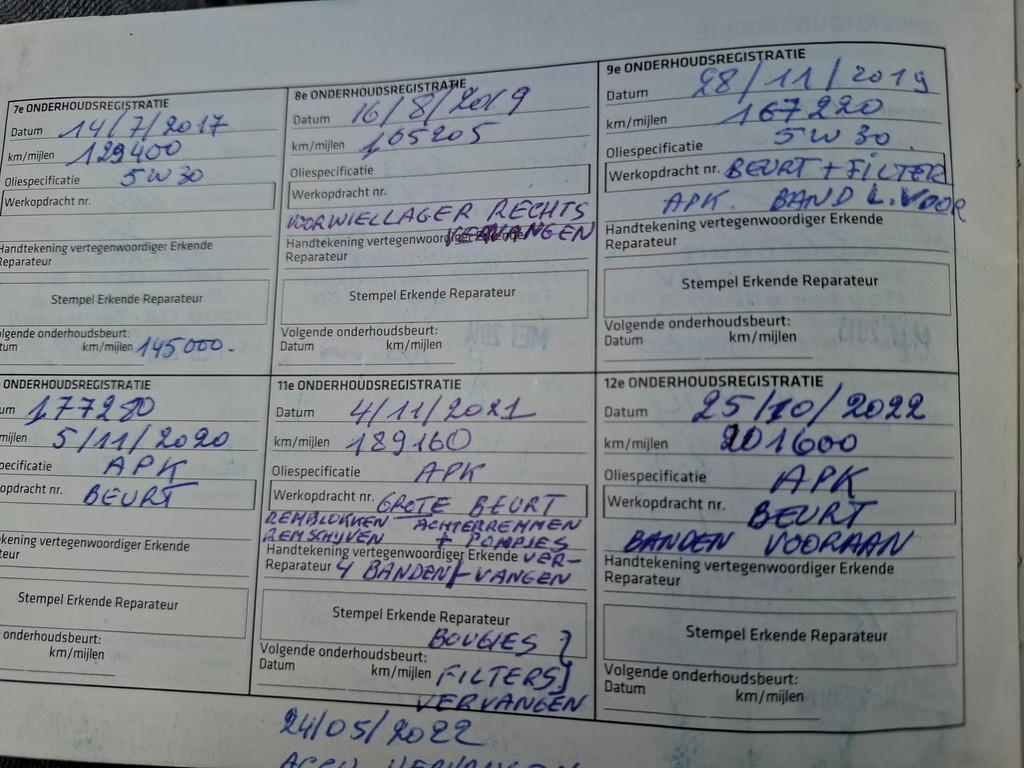 7e ONDERHOUDSREGISTRATIE
Datum 14/7/2017
km/mijlen 129400
Oliespecificatie 5W30
Werkopdracht nr.
Handtekening vertegenwoordiger Erkende
Reparateur
Stempel Erkende Reparateur
lgende onderhoudsbeurt:
tum km/mijlen 145.000.-
8e ONDERHOUDSREGISTRATIE
Datum 16/8/2019
km/mijlen 165205
Oliespecificatie
Werkopdracht nr.
VOORWIELLAGER RECHTS
VERVANGEN
Handtekening vertegenwoordiger Erkende
Reparateur
Stempel Erkende Reparateur
Volgende onderhoudsbeurt:
Datum km/mijlen
9e ONDERHOUDSREGISTRATIE
Datum 28/11/2019
km/mijlen 167220
Oliespecificatie 5W30.
Werkopdracht nr. BEURT + FILTER
APK. BAND L. VOOR
Handtekening vertegenwoordiger Erkende
Reparateur
Stempel Erkende Reparateur
Volgende onderhoudsbeurt:
Datum km/mijlen
ONDERHOUDSREGISTRATIE
um 177280
mijlen 5/11/2020
pecificatie APK
opdracht nr. BEURT
kening vertegenwoordiger Erkende
teur
Stempel Erkende Reparateur
onderhoudsbeurt:
km/mijlen
11e ONDERHOUDSREGISTRATIE
Datum 4/11/2021
km/mijlen 189160
Oliespecificatie APK
Werkopdracht nr. GROTE BEURT
REMBLOKKEN ACHTERREMMEN
REMSCHYVEN + POMPJES
Handtekening vertegenwoordiger Erkende VER-
Reparateur 4 BANDEN VANGEN
Stempel Erkende Reparateur
BOUGIES }
Volgende onderhoudsbeurt:
Datum km/mijlen FILTERS }
VERVANGEN
12e ONDERHOUDSREGISTRATIE
Datum 25/10/2022
km/mijlen 201600
Oliespecificatie APK
Werkopdracht nr. BEURT
BANDEN VOORAAN
Handtekening vertegenwoordiger Erkende
Reparateur
Stempel Erkende Reparateur
Volgende onderhoudsbeurt:
Datum km/mijlen
24/05/2022
ACCU VERVANGEN